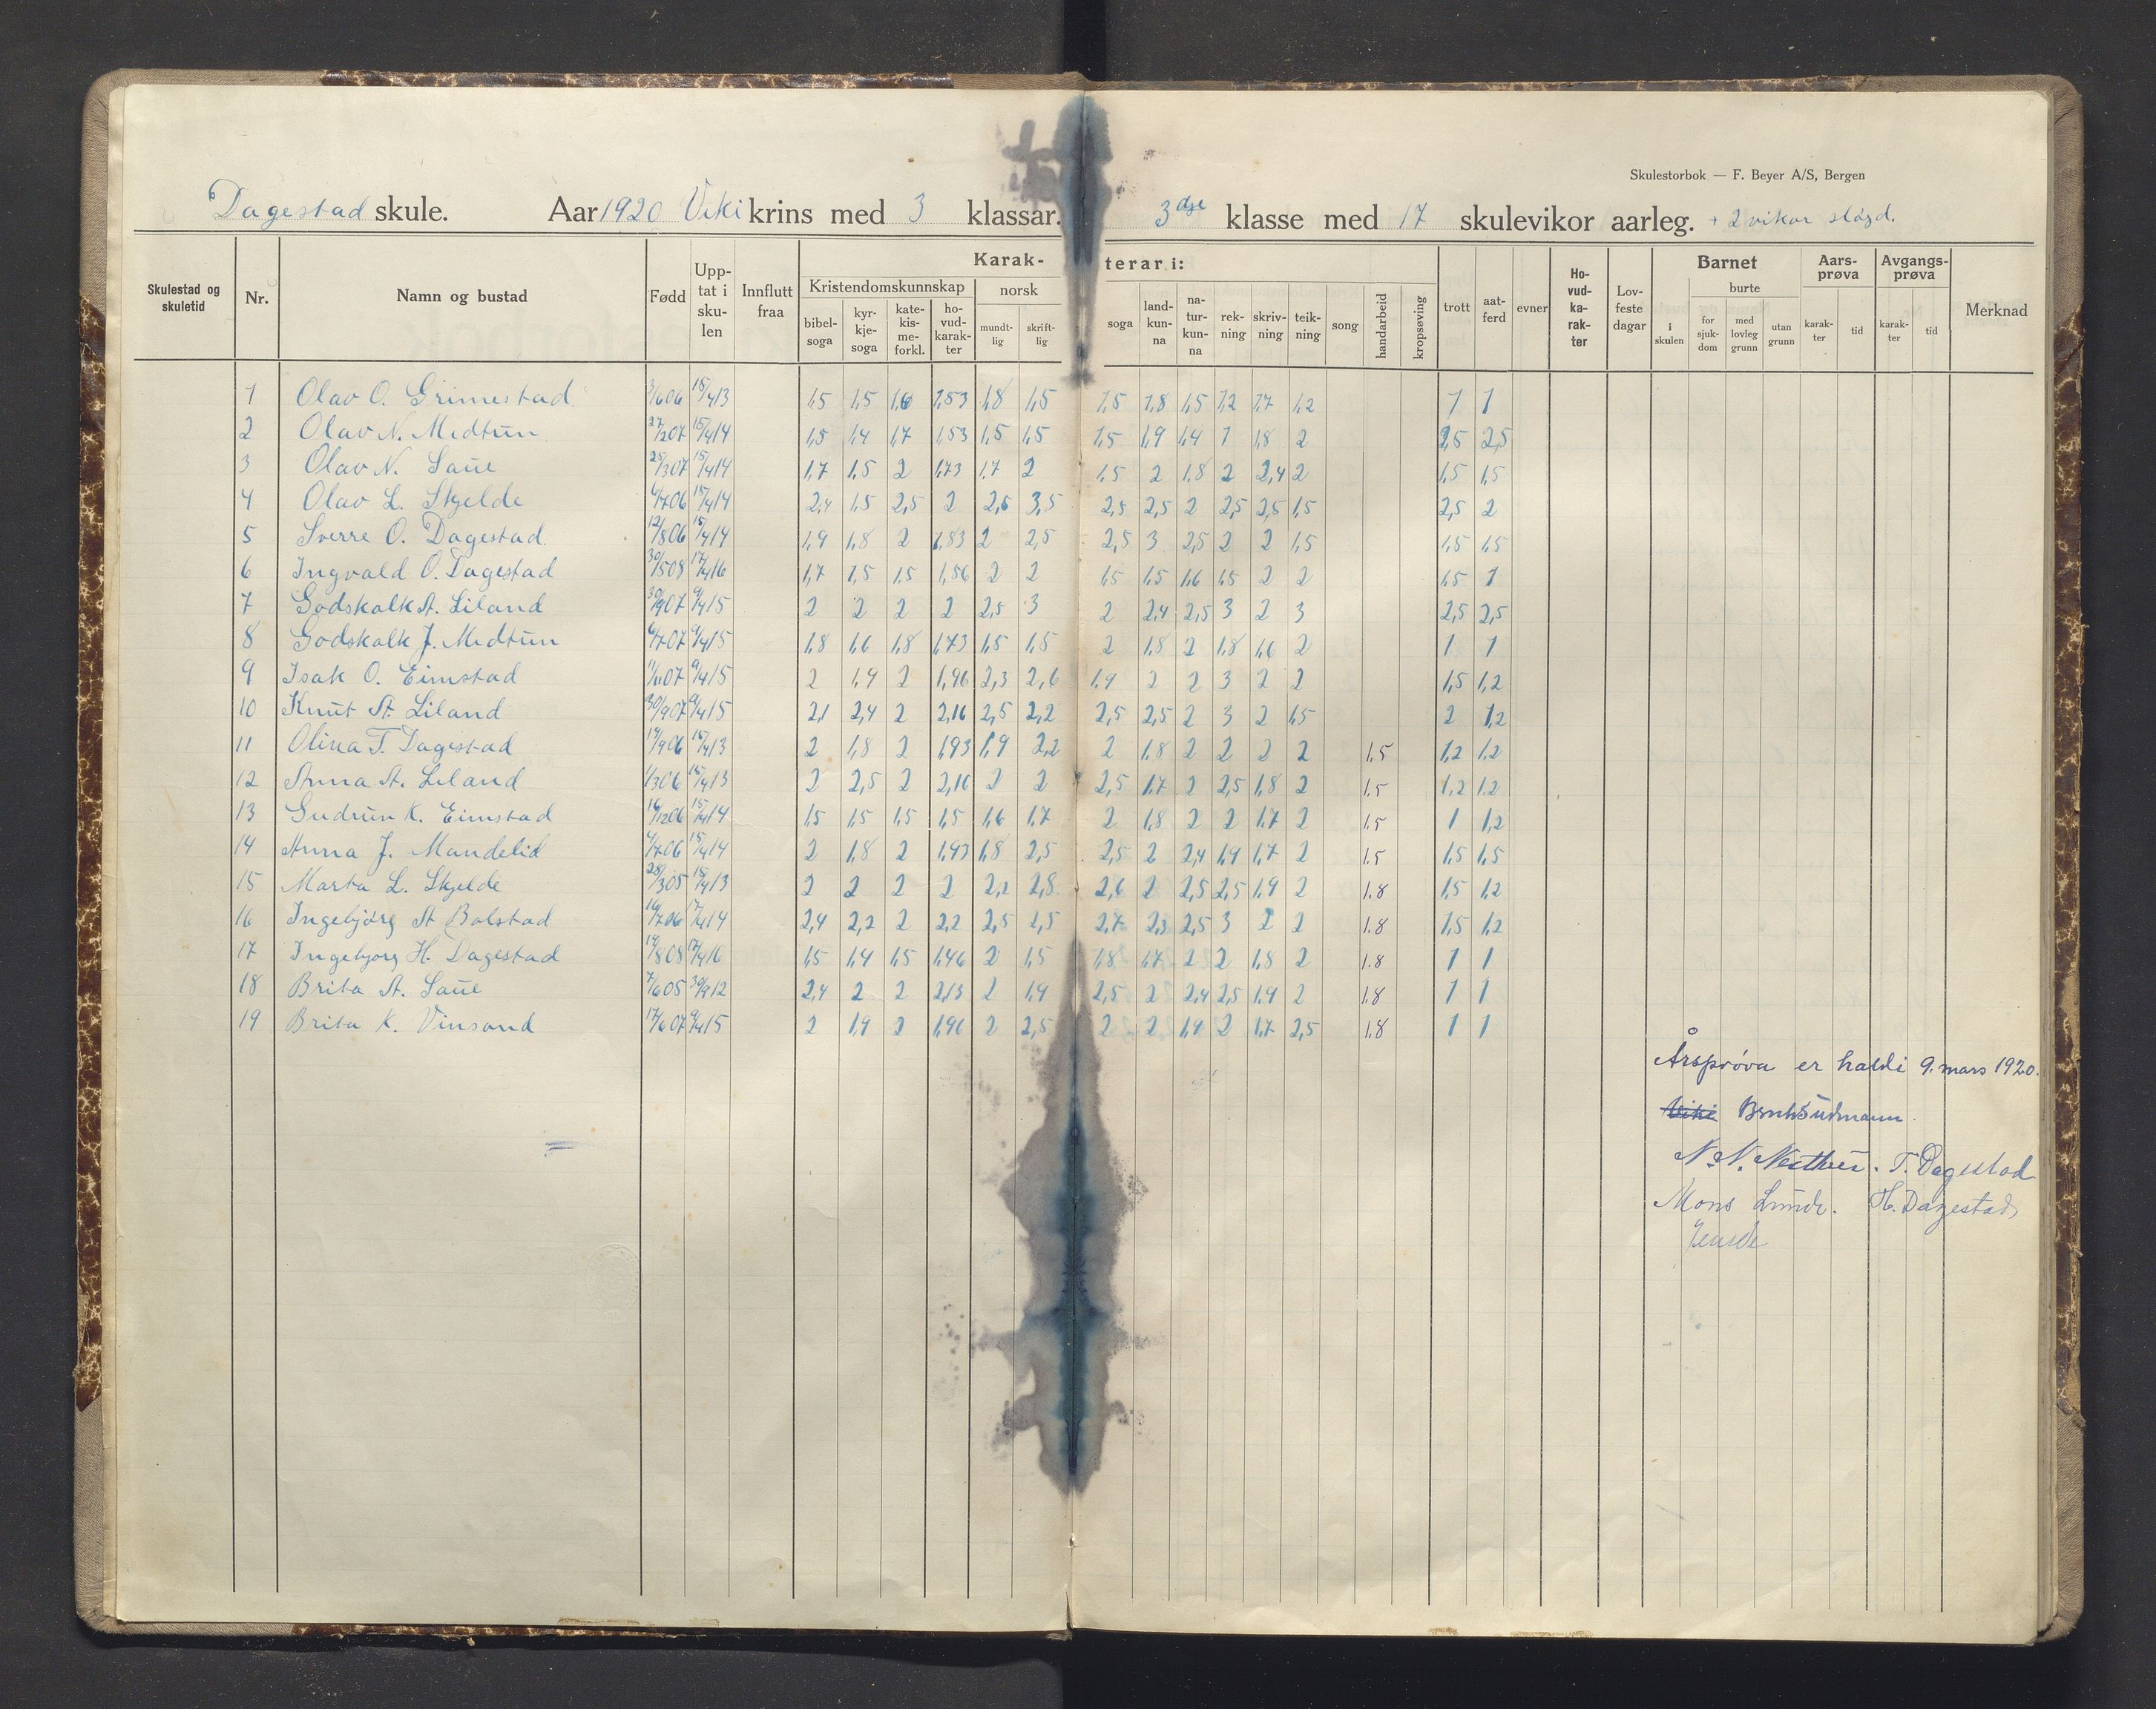 Skulestorbok — F. Beyer A/S, Bergen
Dagestad skule. Aar 1920 Viki krins med 3 klassar. 3dje klasse med 17 skulevikor aarleg. + 2 vikor sløyd.
Skulestad og skuletid Nr. Namn og bustad Fødd Upp-tat i sku-len Innflutt fraa Karak-terar i: Kristendomskunnskap bibel-soga kyr-kje-soga kate-kis-me-forkl. ho-vud-karak-ter norsk mundt-lig skrift-lig soga land-kun-na na-tur-kun-na rek-ning skriv-ning teik-ning song handarbeid kropsøving trott aat-ferd evner Ho-vud-ka-rak-ter Lov-feste dagar Barnet i skulen burte for sjuk-dom med lovleg grunn utan grunn Aars-prøva karak-ter tid Avgangs-prøva karak-ter tid Merknad
1 Olav O. Grimestad 3/6 06 15/4 13 1,5 1,5 1,6 1,53 1,8 1,5 1,5 1,8 1,5 1,2 1,7 1,2 1 1
2 Olav N. Midtun 27/2 07 15/4 14 1,5 1,4 1,7 1,53 1,5 1,5 1,5 1,9 1,4 1 1,8 2 2,5 2,5
3 Olav N. Saue 25/3 07 15/4 14 1,7 1,5 2 1,73 1,7 2 1,5 2 1,8 2 2,4 2 1,5 1,5
4 Olav L. Skjelde 4/7 06 15/4 14 2,4 1,5 2,5 2 2,6 3,5 2,5 2,5 2 2,5 2,5 1,5 2,5 2
5 Sverre O. Dagestad 12/8 06 15/4 14 1,9 1,8 2 1,83 2 2,5 2,5 3 2,5 2 2 1,5 1,5 1,5
6 Ingvald O. Dagestad 30/5 08 17/4 16 1,7 1,5 1,5 1,56 2 2 1,5 1,5 1,6 1,5 2 2 1,5 1
7 Godskalk A. Liland 30/9 07 9/4 15 2 2 2 2 2,5 3 2 2,4 2,5 3 2 3 2,5 2,5
8 Godskalk J. Midtun 6/7 07 9/4 15 1,8 1,6 1,8 1,73 1,5 1,5 2 1,8 2 1,8 1,6 2 1 1
9 Isak O. Eimstad 11/11 07 9/4 15 2 1,9 2 1,96 2,3 2,6 1,9 2 2 3 2 2 1,5 1,2
10 Knut A. Liland 30/9 07 9/4 15 2,1 2,4 2 2,16 2,5 2,2 2,5 2,5 2 3 2 1,5 2 1,2
11 Olina T. Dagestad 19/9 06 15/4 13 2 1,8 2 1,93 1,9 2,2 2 1,8 2 2 2 2 1,5 1,2 1,2
12 Anna A. Liland 1/3 06 15/4 13 2 2,5 2 2,16 2 2 2,5 1,7 2 2,5 1,8 2 1,5 1,2 1,2
13 Gudrun K. Eimstad 16/12 06 15/4 14 1,5 1,5 1,5 1,5 1,6 1,7 2 1,8 2 2 1,7 2 1,5 1 1,2
14 Anna J. Mandelid 4/7 06 15/4 14 2 1,8 2 1,93 1,8 2,5 2,5 2 2,4 1,9 1,7 2 1,5 1,5 1,5
15 Marta L. Skjelde 28/3 05 15/4 13 2 2 2 2 2,2 2,8 2,6 2 2,5 2,5 1,9 2 1.8 1,5 1,2
16 Ingebjørg A Bolstad 16/7 06 17/4 14 2,4 2,2 2 2,2 2,5 2,5 2,7 2,3 2,5 3 2 2 1.8 1,5 1,2
17 Ingebjørg H. Dagestad 14/8 08 17/4 16 1,5 1,4 1,5 1,46 2 1,5 1,8 1,7 2 2 1,8 2 1.8 1 1
18 Brita A. Saue 7/6 05 30/9 12 2,4 2 2 2,13 2 1,9 2,5 2 2,4 2,5 1,9 2 1.8 1 1
19 Brita K. Vinsand 17/6 07 9/4 15 2 1,9 2 1,96 2 2,5 2 2 1,9 2 1,7 2,5 1.8 1 1
Årsprøva er haldi 9. mars 1920.
Viki
T. Dagestad
Mons Lunde. H. Dagestad